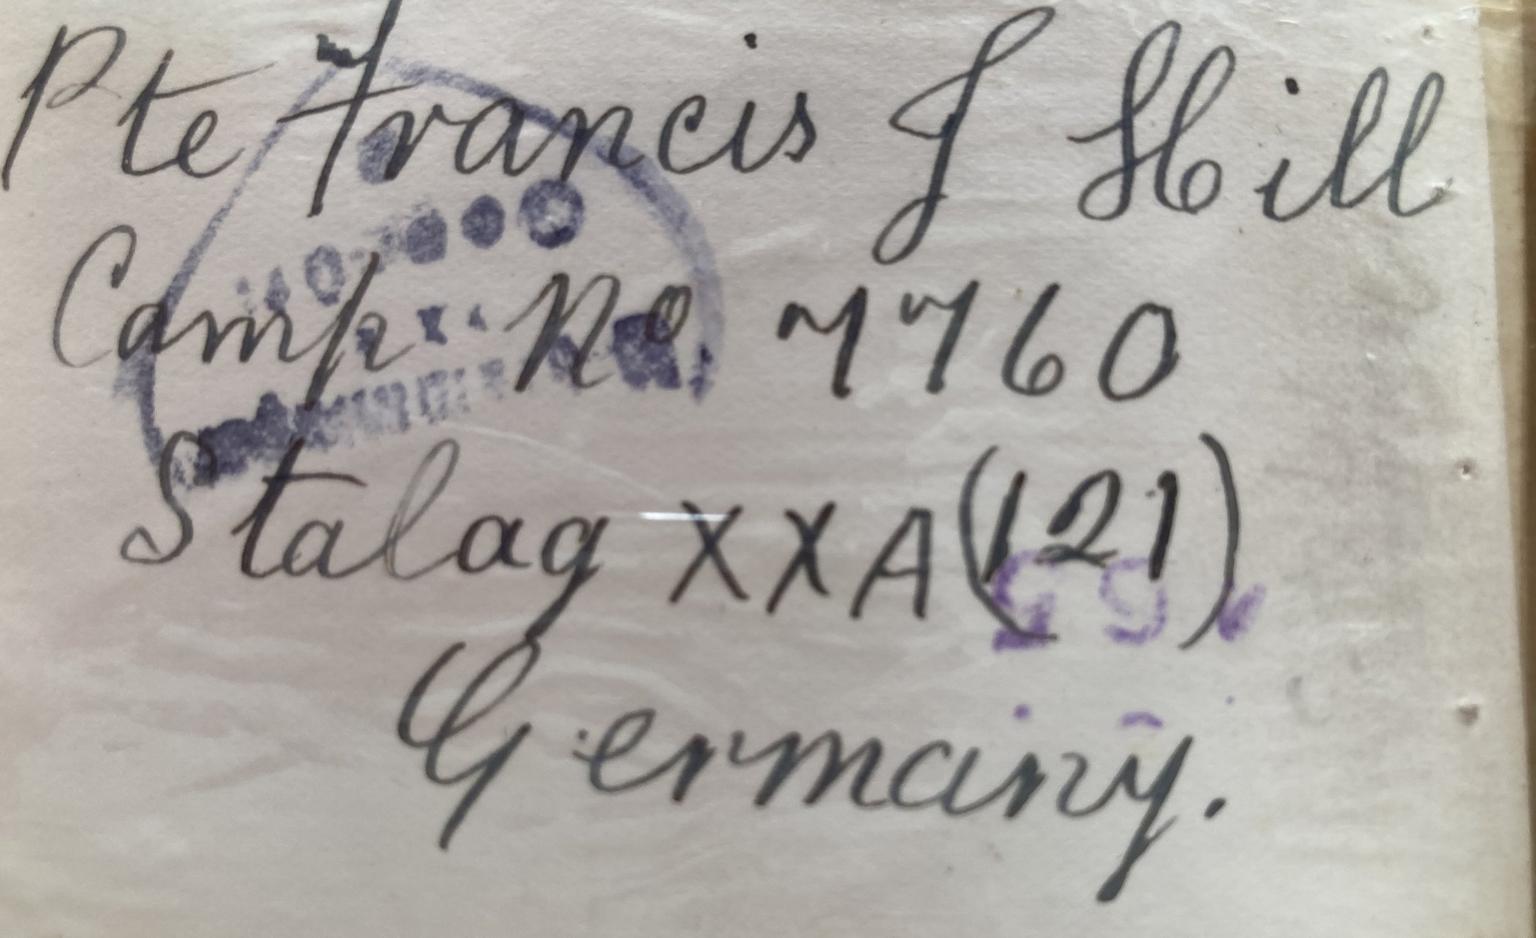 Pte Francis J Hill
Camp No 7760
Stalag XXA (121)
Germany.